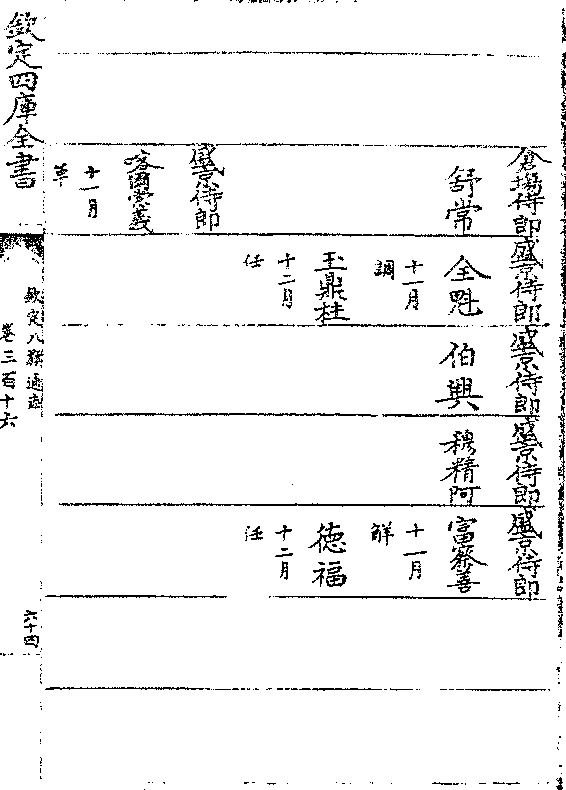 倉場侍郎
盛京侍郎
盛京侍郎
盛京侍郎
盛京侍郎
舒常
全魁
伯興
穆精阿
富察善
十一月
調
十一月
解
玉鼎柱
德福
十二月
任
十二月
任
盛京侍郎
喀爾崇義
十一月
革
欽定四庫全書
欽定八旗通志
卷三百十六
六十四